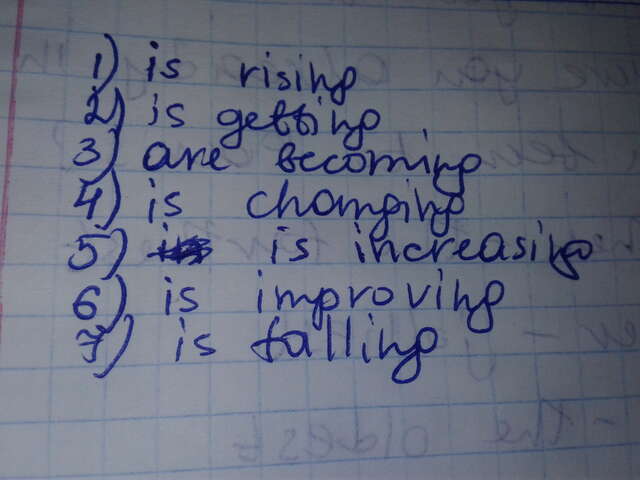 1) is rising
2) is getting
3) are becoming
4) is changing
5) is increasing
6) is improving
7) is falling
- the oldest